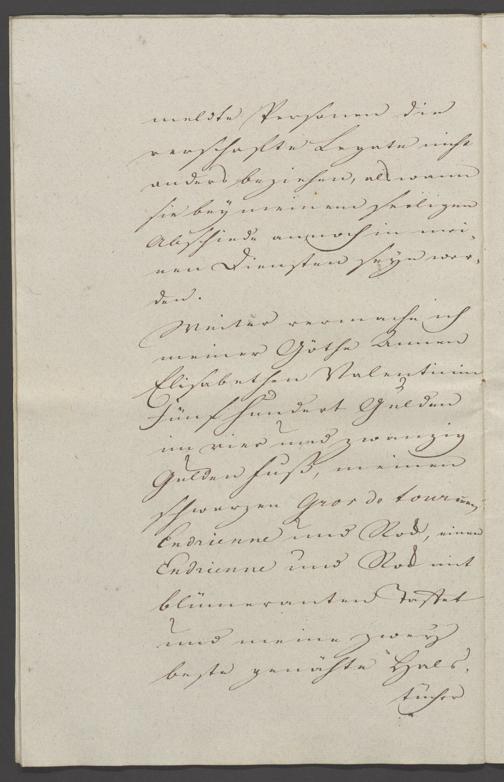 meldte Personen die
verschafte Legate nicht
anders beziehen, als wann
sie bey meinem seeligen
Abschiede annoch in mei-
nen Diensten seyn wer-
den.
Weiter vermache ich
meiner Göthe Annen
Elisabethen Valentinin
fünf hundert Gulden
im vier und zwanzig
Gulden fuß, meinen
schwarzen Gros de tour
Endrienne und Rock, einen
Endrienne und Rock mit
blümeranten Taffet
und meine zwey
beste genähte Hals-
tücher